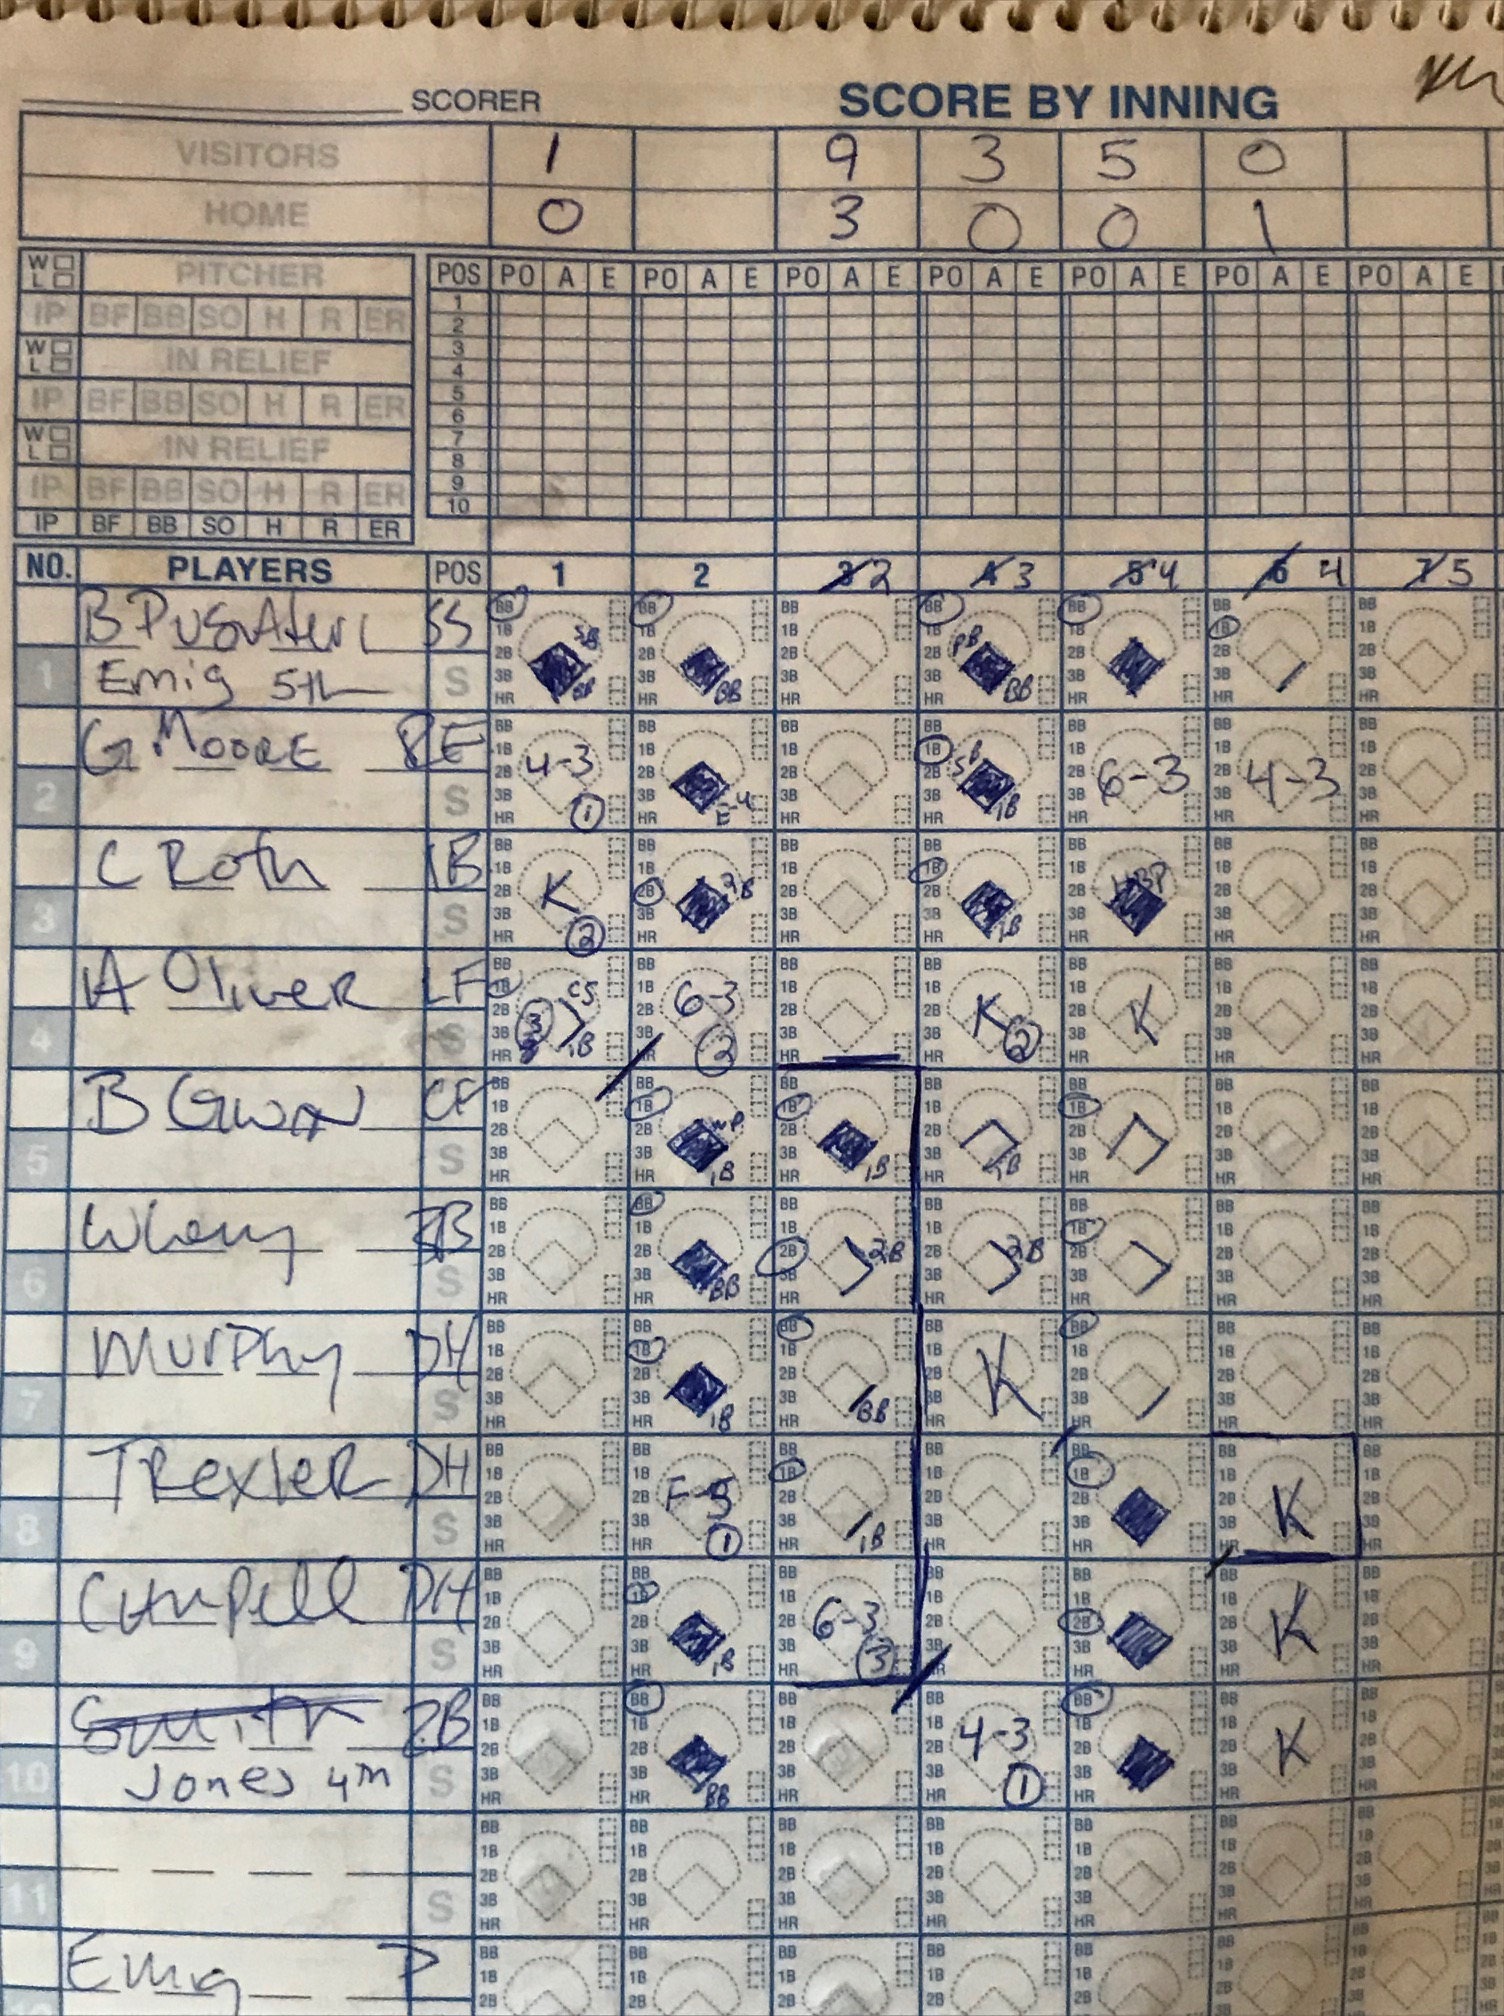 SCORER SCORE BY INNING
VISITORS 1 9 3 5 0
HOME 0 3 0 0 1
W L PITCHER POS PO A E PO A E PO A E PO A E PO A E PO A E PO A E
IP BF BB SO H R ER
W L IN RELIEF
IP BF BB SO H R ER
W L IN RELIEF
IP BF BB SO H R ER
IP BF BB SO H R ER
1
2
3
4
5
6
7
8
9
10
NO. PLAYERS POS 1 2 3 2 4 3 5 4 6 4 7 5
B Pusateri SS
1 Emig 5th S
SB BB PB BB
G Moore RF
2 S
4-3 1 E-4 SB 1B 6-3 4-3
C Roth 1B
3 S
K 2 2B 1B HBP
A Oliver LF
4 S
3 CS 1B 6-3 2 K 2 K
B Gwin CF
5 S
WP 1B 1B
3B
6 S
BB 2B 2B
Murphy DH
7 S
1B BB K
Trexler DH
8 S
F-5 1 1B K
DH
9 S
1B 6-3 3 K
Smith 2B
10 Jones 4th S
BB 4-3 1 K
11 S
Emig P